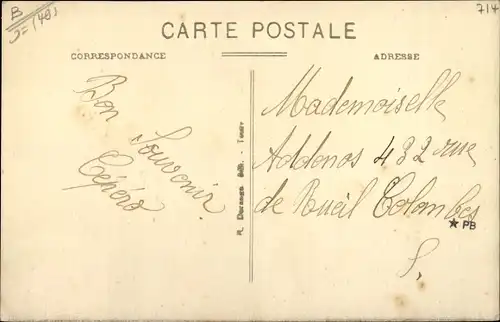 B
714
CARTE POSTALE
CORRESPONDANCE
ADRESSE
Bon
Souvenir
Cépéro
Mademoiselle
Addenos 432 rue
de Rueil Colombes
S.
★ PB